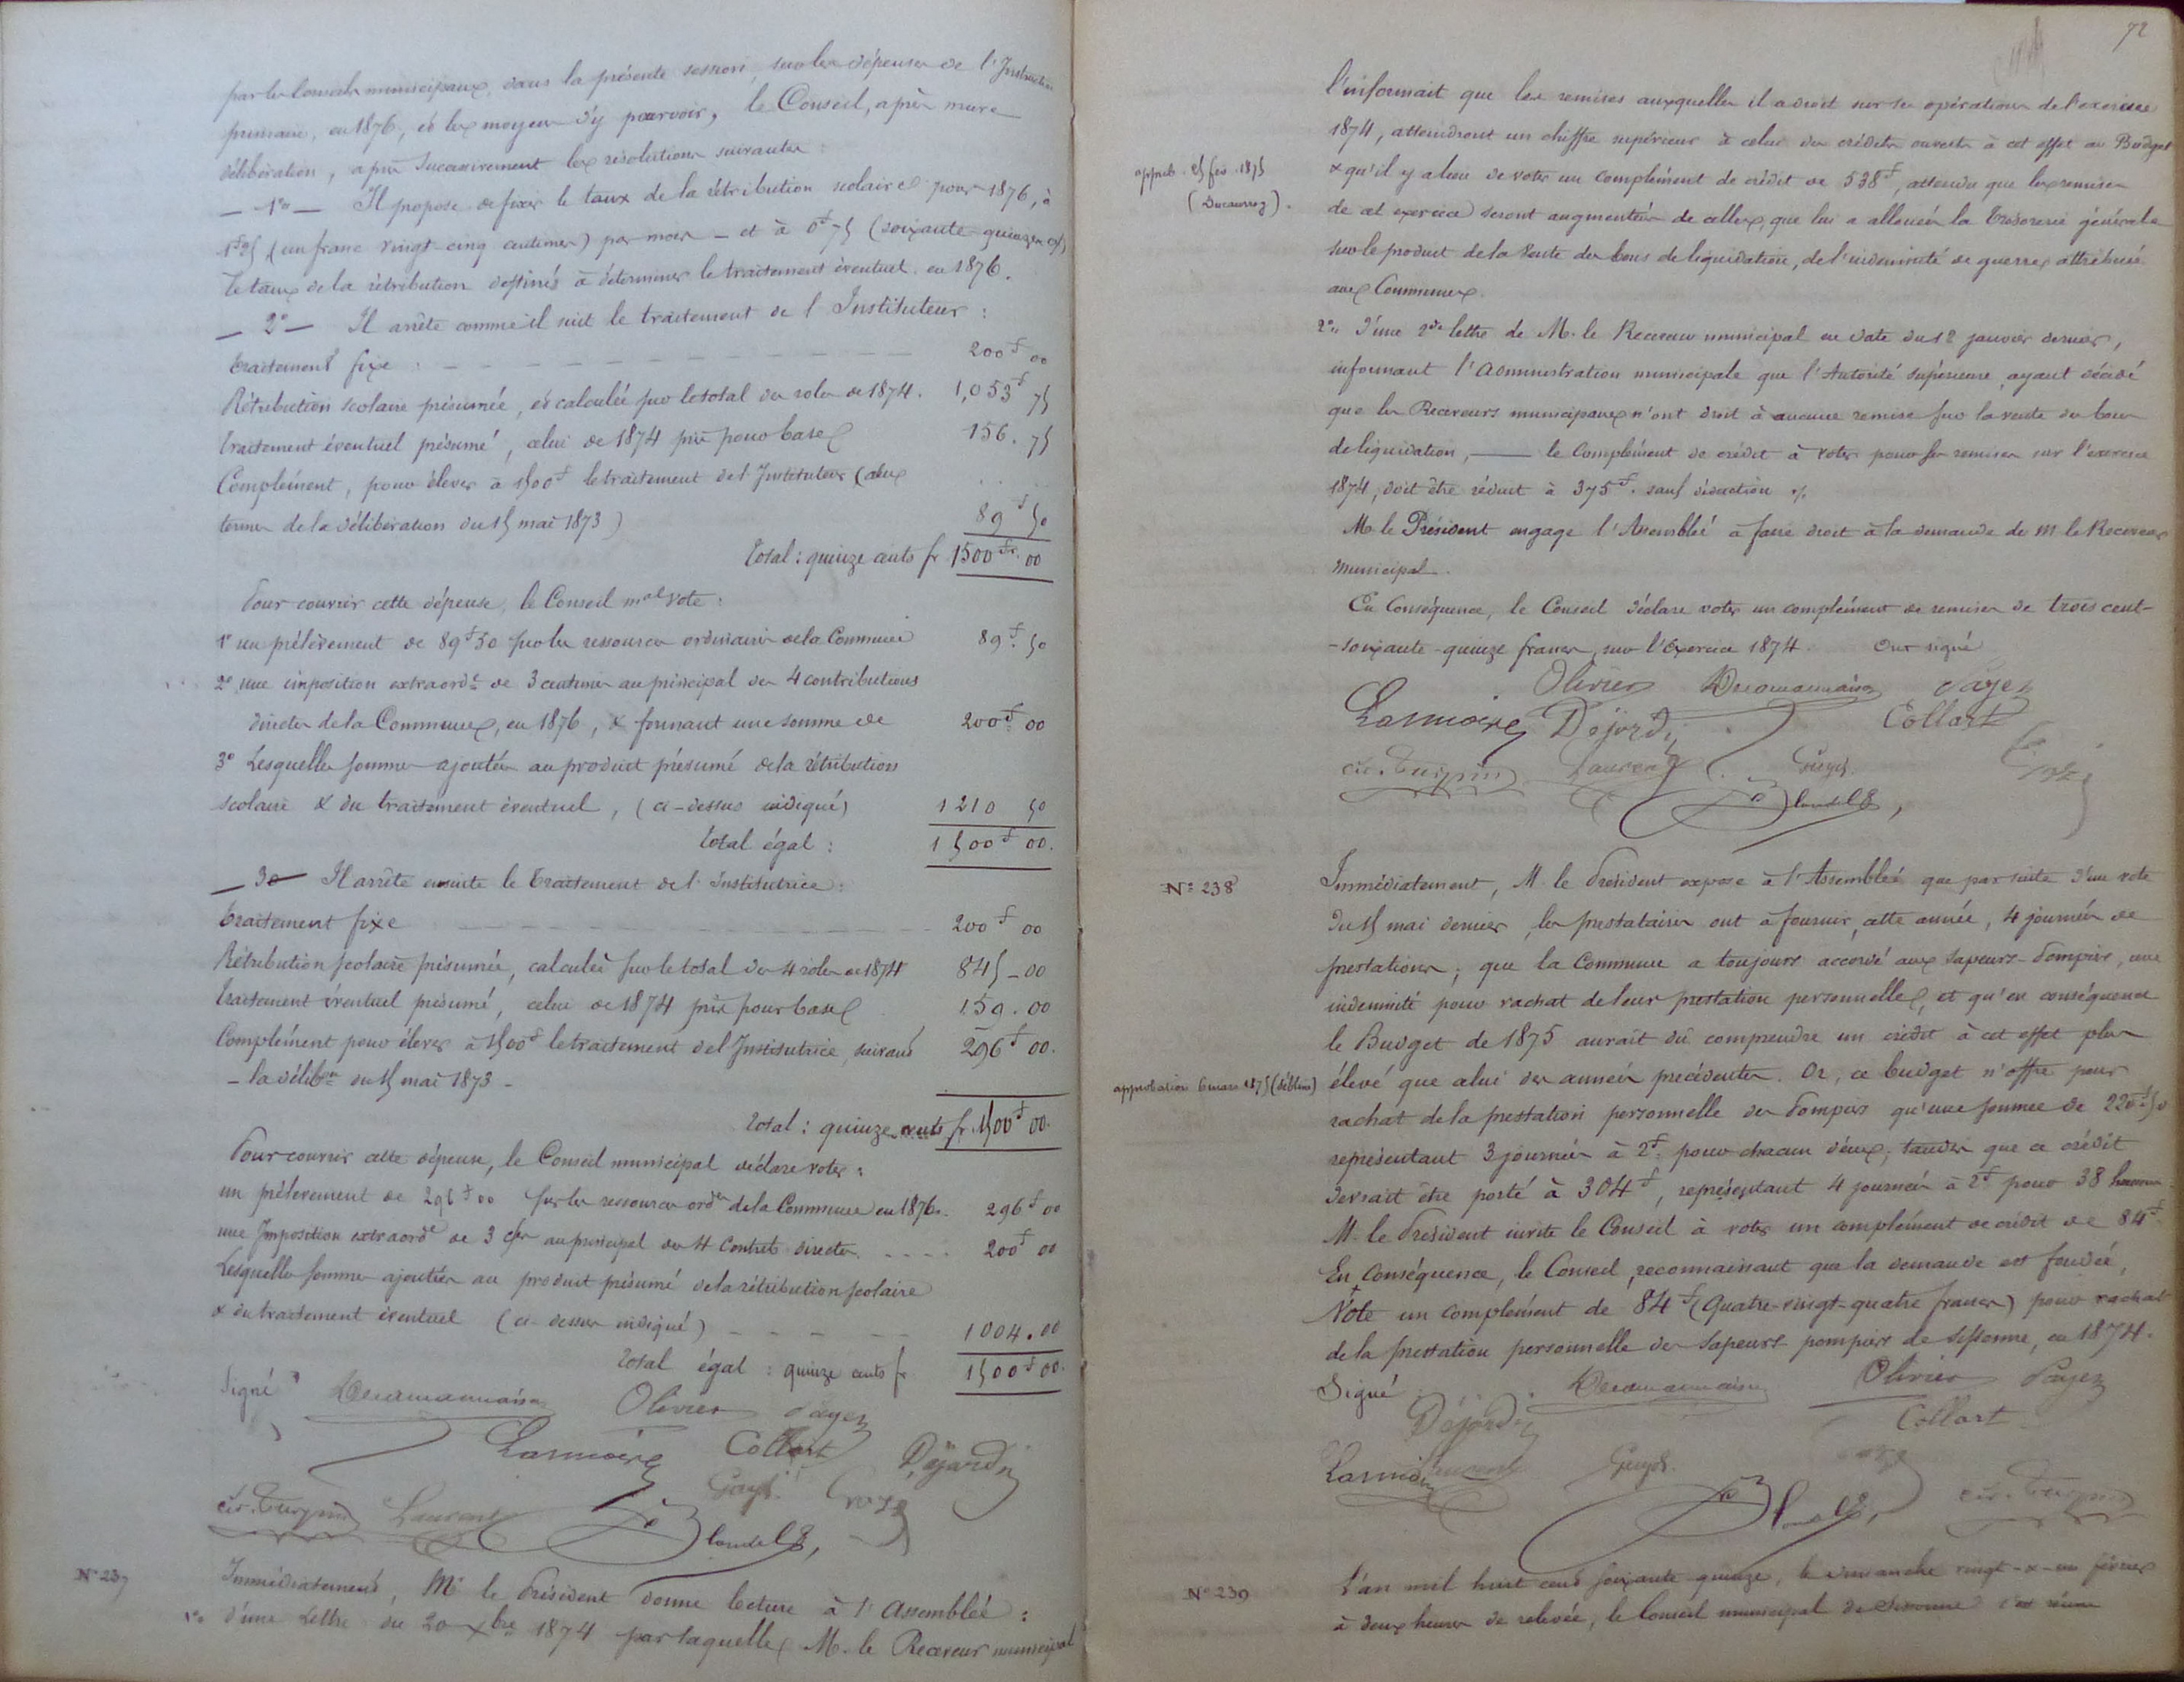 par les Conseils municipaux, dans la présente session, sur les dépenses de l'Instruction
primaire, en 1876, et les moyens d'y pourvoir, le Conseil, après mure
délibération, a pris successivement les résolutions suivantes :
— 1° — Il propose de fixer le taux de la rétribution scolaire pour 1876, à
1f25 (un franc vingt-cinq centimes) par mois — et à 0f-75 (soixante-quinze cs)
le taux de la rétribution destinés à déterminer le traitement éventuel en 1876.
— 2° — Il arrête comme il suit le traitement de l'Instituteur :
Traitement fixe : 200f 00
Rétribution scolaire présumée, et calculée sur le total des roles de 1874. 1,053f 75
Traitement éventuel présumé, celui de 1874 pris pour base 156. 75
Complément, pour élever à 1500f le traitement de l'Instituteur (aux
termes de la délibération du 15 mai 1873) 89f 50
Total : quinze cents fr 1500fr. 00
Pour couvrir cette dépense, le Conseil mal vote :
1° un prélèvement de 89f50 sur les ressources ordinaires de la Commune 89f. 50
2° une imposition extraordre de 3 centimes au principal des 4 contributions
directes de la Commune, en 1876, & formant une somme de 200f 00
3° Lesquelles sommes ajoutées au produit présumé de la rétribution
scolaire & du traitement éventuel, (ci-dessus indiqué) 1210 50
Total égal : 1500f 00.
— 3° — Il arrête ensuite le Traitement de l'Institutrice :
Traitement fixe 200f 00
Rétribution scolaire présumée, calculée sur le total des 4 roles de 1874 845-00
Traitement éventuel présumé, celui de 1874 pris pour base 159.00
Complément pour élever à 1500f le traitement de l'Institutrice, suivant 296f 00.
— la délibon du 15 mai 1873 —
Total : quinze cents fr. 1500f 00.
Pour couvrir cette dépense, le Conseil municipal déclare voter :
un prélèvement de 296f00 sur les ressources ordres de la Commune en 1876. 296f 00
une Imposition extraorde de 3 cmes au principal des 4 Contribs directes. 200f 00
Lesquelles sommes ajoutées au produit présumé de la rétribution scolaire
& du traitement éventuel (ci-dessus indiqué) 1004.00
Total égal : quinze cents fr 1500f00.
Signé Olivier Payen
Collart Dejardin
cir. Turpin Laurent Blondel
N° 237
Immédiatement, Mr le Président donne lecture à l'Assemblée :
1° d'une Lettre du 20 xbre 1874 par laquelle M. le Receveur municipal
72
l'informait que les remises auxquelles il a droit sur ses opérations de l'exercice
1874, atteindront un chiffre supérieur à celui des crédits ouverts à cet effet au Budget
approb. 25 fév. 1875
& qu'il y a lieu de voter un complément de crédit de 538f, attendu que les remises
de cet exercice seront augmentées de celles, que lui a allouées la Trésorerie générale
sur le produit de la Vente des bons de liquidation, de l'indemnité de guerre, attribuée
aux Communes.
2° d'une 2de lettre de M. le Receveur municipal en date du 12 janvier dernier,
informant l'Administration municipale que l'Autorité supérieure ayant décidé
que les Receveurs municipaux n'ont droit à aucune remise sur la vente des bons
de liquidation, — le Complément de crédit à voter pour les remises sur l'exercice
1874, doit être réduit à 375f. sauf déduction
M. le Président engage l'Assemblée à faire droit à la demande de M. le Receveur
Municipal.
En Conséquence, le Conseil déclare voter un complément de remises de trois cent-
-soixante-quinze francs, sur l'Exercice 1874. Ont signé
Olivier Payen
Dejardin Collart
cir. Turpin Laurent Blondel
N° 238
Immédiatement, M. le Président expose à l'Assemblée que par suite d'un vote
du 15 mai dernier, les prestataires ont à fournir, cette année, 4 journées de
prestations ; que la Commune a toujours accordé aux Sapeurs-Pompiers, une
indemnité pour rachat de leur prestation personnelle, et qu'en conséquence
le Budget de 1875 aurait dû comprendre un crédit à cet effet plus
approbation 6 mars 1875
élevé que celui des années précédentes. Or, ce budget n'offre pour
rachat de la prestation personnelle des Pompiers qu'une somme de 220f.50
représentant 3 journées à 2f. pour chacun d'eux, tandis que ce crédit
devrait être porté à 304f, représentant 4 journées à 2f pour 38 hommes.
M. le Président invite le Conseil à voter un complément de crédit de 84f.
En Conséquence, le Conseil, reconnaissant que la demande est fondée,
Vote un complément de 84f (Quatre-vingt-quatre francs) pour rachat
de la prestation personnelle des Sapeurs-pompiers de Sissonne, en 1874.
Signé Olivier Payen
Dejardin Collart
cir. Turpin
N° 239
L'an mil huit cent soixante-quinze, le dimanche vingt-&-un février
à deux heures de relevée, le Conseil municipal de Sissonne s'est réuni